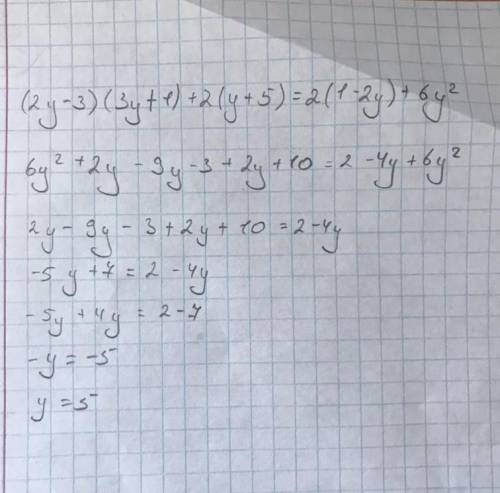 (2y-3)(3y+1)+2(y+5)=2(1-2y)+6y²
6y²+2y-9y-3+2y+10=2-4y+6y²
2y-9y-3+2y+10=2-4y
-5y+7=2-4y
-5y+4y=2-7
-y=-5
y=5